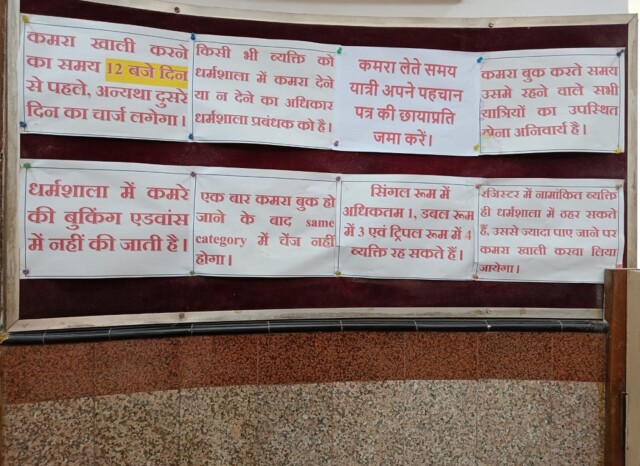 कमरा खाली करने
का समय 12 बजे दिन
से पहले, अन्यथा दुसरे
दिन का चार्ज लगेगा।
किसी भी व्यक्ति को
धर्मशाला में कमरा देने
या न देने का अधिकार
धर्मशाला प्रबंधक को है।
कमरा लेते समय
यात्री अपने पहचान
पत्र की छायाप्रति
जमा करें।
कमरा बुक करते समय
उसमे रहने वाले सभी
यात्रियों का उपस्थित
होना अनिवार्य है।
धर्मशाला में कमरे
की बुकिंग एडवांस
में नहीं की जाती है।
एक बार कमरा बुक हो
जाने के बाद same
category में चेंज नहीं
होगा।
सिंगल रूम में
अधिकतम 1, डबल रूम
में 3 एवं ट्रिपल रूम में 4
व्यक्ति रह सकते हैं।
रजिस्टर में नामांकित व्यक्ति
ही धर्मशाला में ठहर सकते
हैं, उससे ज्यादा पाए जाने पर
कमरा खाली करवा लिया
जायेगा।